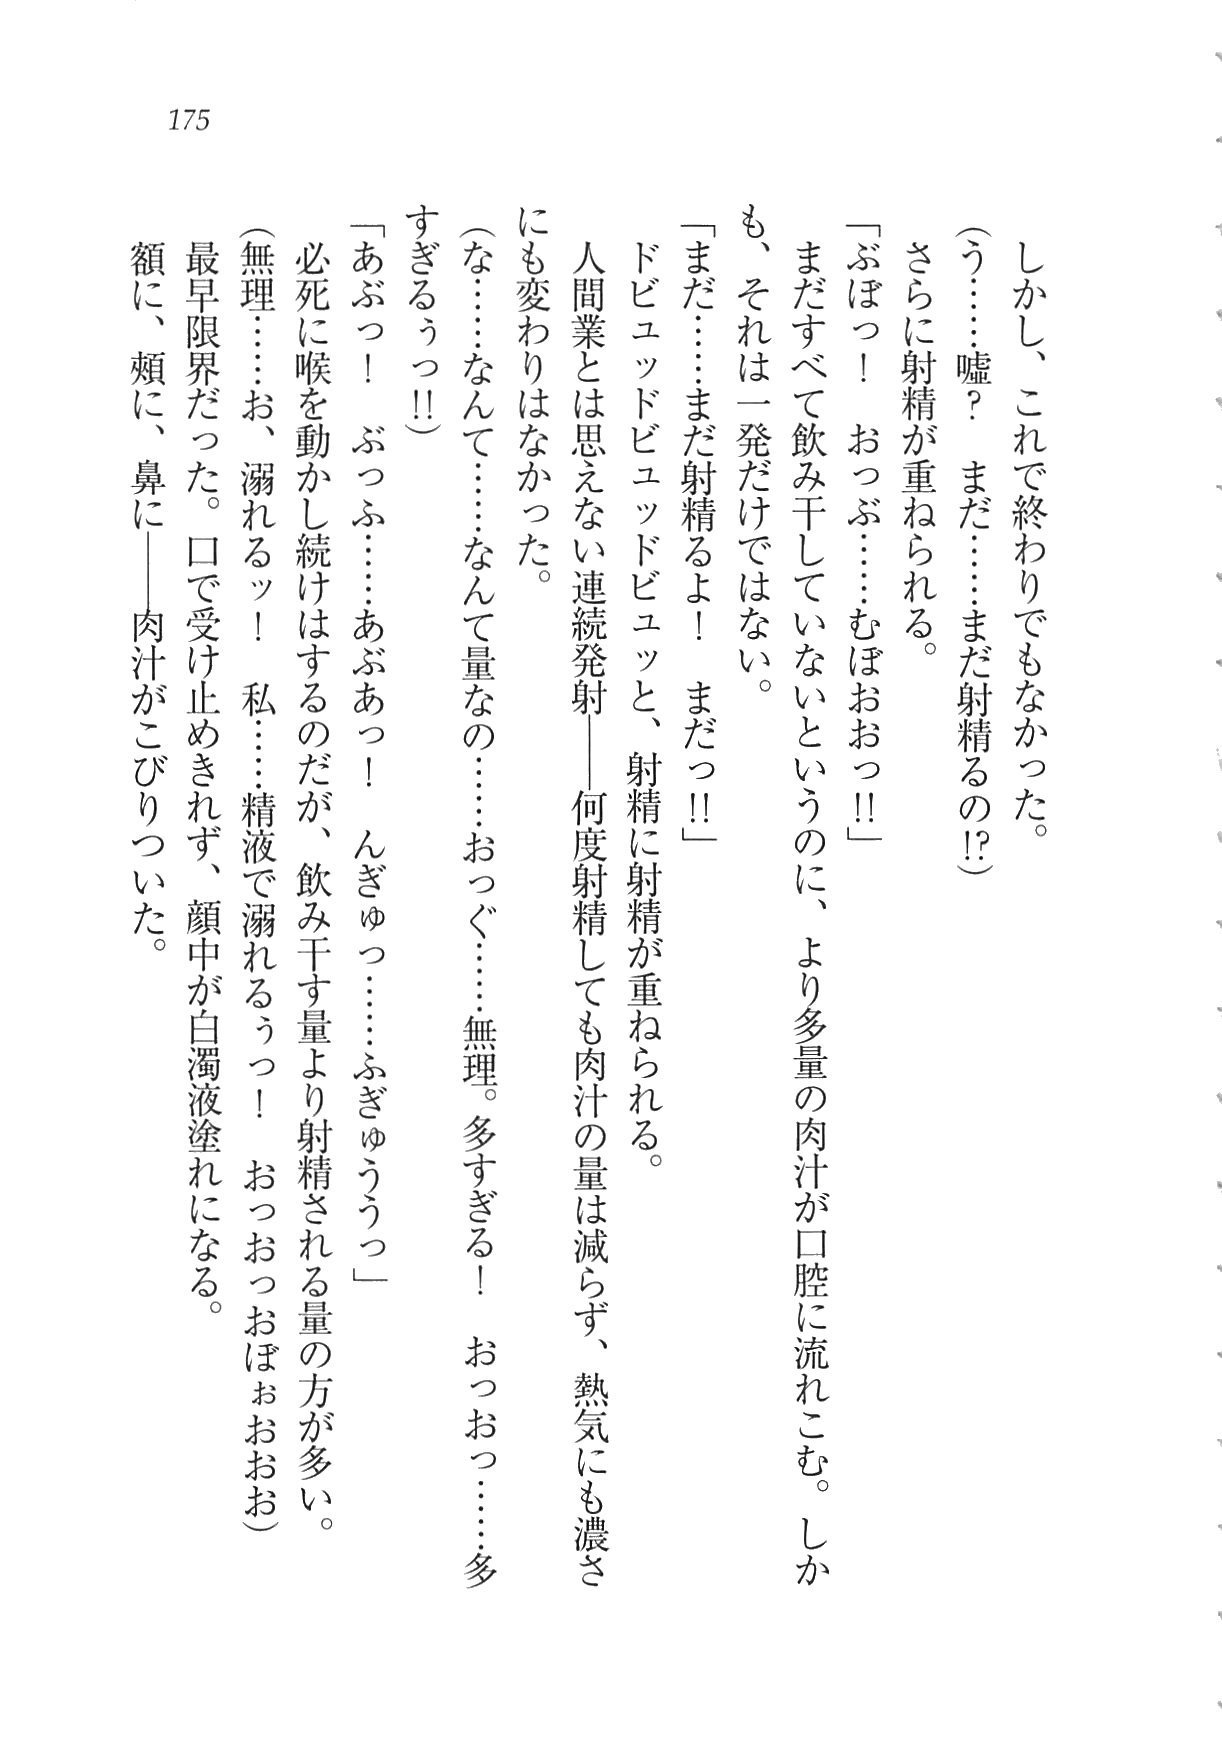 175
しかし、これで終わりでもなかった。
（う……嘘？　まだ……まだ射精るの!?）
さらに射精が重ねられる。
「ぶぼっ！　おっぶ……むぼおおっ!!」
まだすべて飲み干していないというのに、より多量の肉汁が口腔に流れこむ。しか
も、それは一発だけではない。
「まだ……まだ射精るよ！　まだっ!!」
ドビュッドビュッドビュッと、射精に射精が重ねられる。
人間業とは思えない連続発射――何度射精しても肉汁の量は減らず、熱気にも濃さ
にも変わりはなかった。
（な……なんて……なんて量なの……おっぐ……無理。多すぎる！　おっおっ……多
すぎるぅっ!!）
「あぶっ！　ぶっふ……あぶあっ！　んぎゅっ……ふぎゅううっ」
必死に喉を動かし続けはするのだが、飲み干す量より射精される量の方が多い。
（無理……お、溺れるッ！　私……精液で溺れるぅっ！　おっおっおぼぉおおお）
最早限界だった。口で受け止めきれず、顔中が白濁液塗れになる。
額に、頰に、鼻に――肉汁がこびりついた。